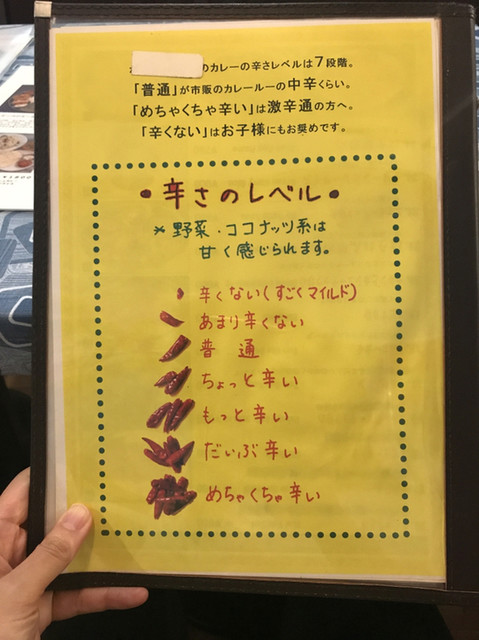 のカレーの辛さレベルは7段階。
「普通」が市販のカレールーの中辛くらい。
「めちゃくちゃ辛い」は激辛通の方へ。
「辛くない」はお子様にもお奨めです。
・辛さのレベル・
*野菜・ココナッツ系は
甘く感じられます。
辛くない(すごくマイルド)
あまり辛くない
普通
ちょっと辛い
もっと辛い
だいぶ辛い
めちゃくちゃ辛い